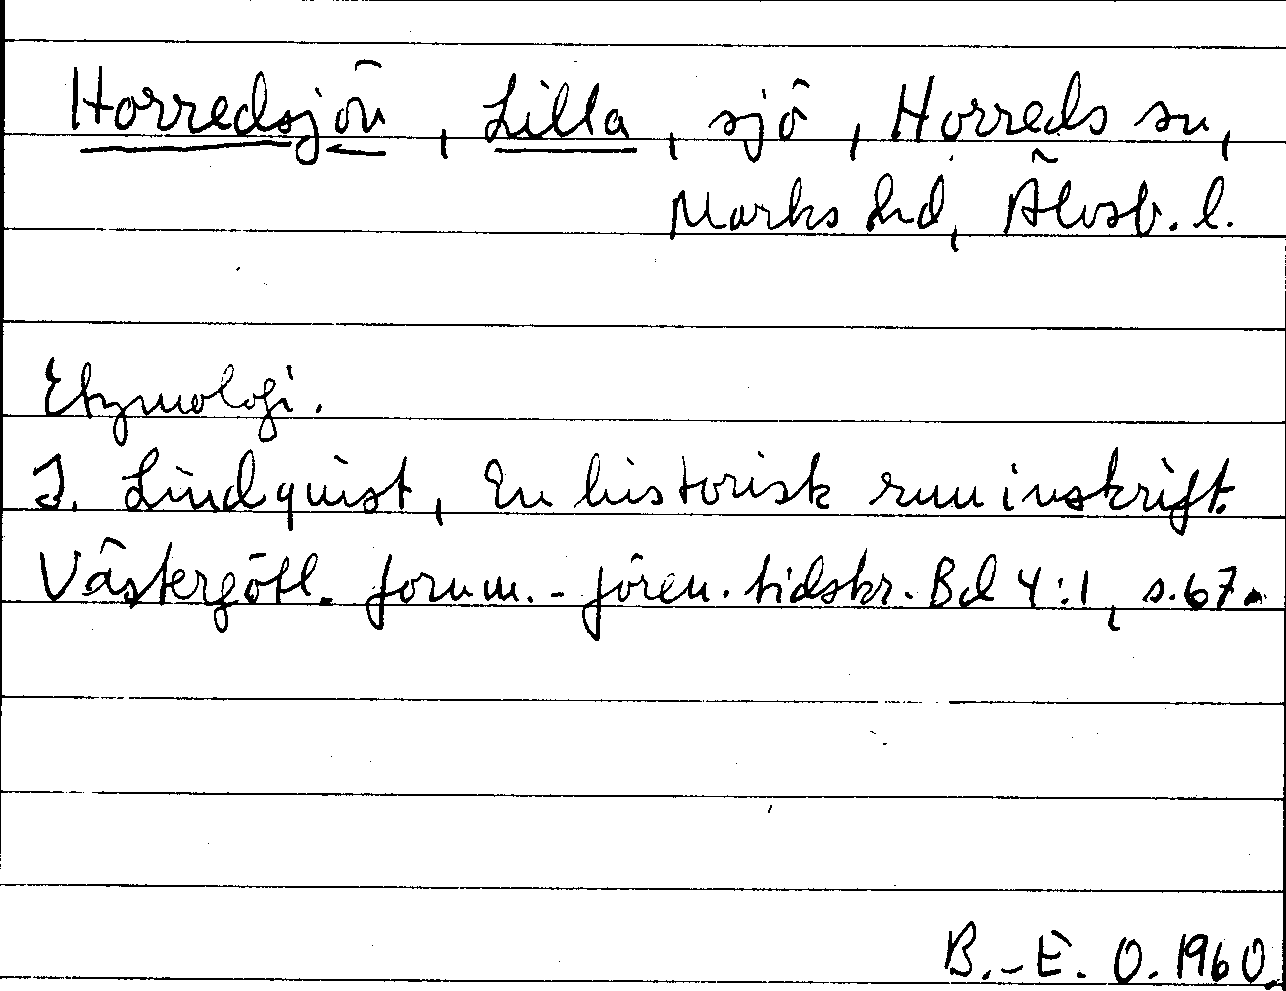 Horredsjön, Lilla, sjö, Horreds sn,
Marks hd, Älvsb. l.
Etymologi.
I. Lindquist, En historisk runinskrift.
Västergötl. fornm.-fören. tidskr. Bd 4:1, s. 67.
B.-E. O. 1960.